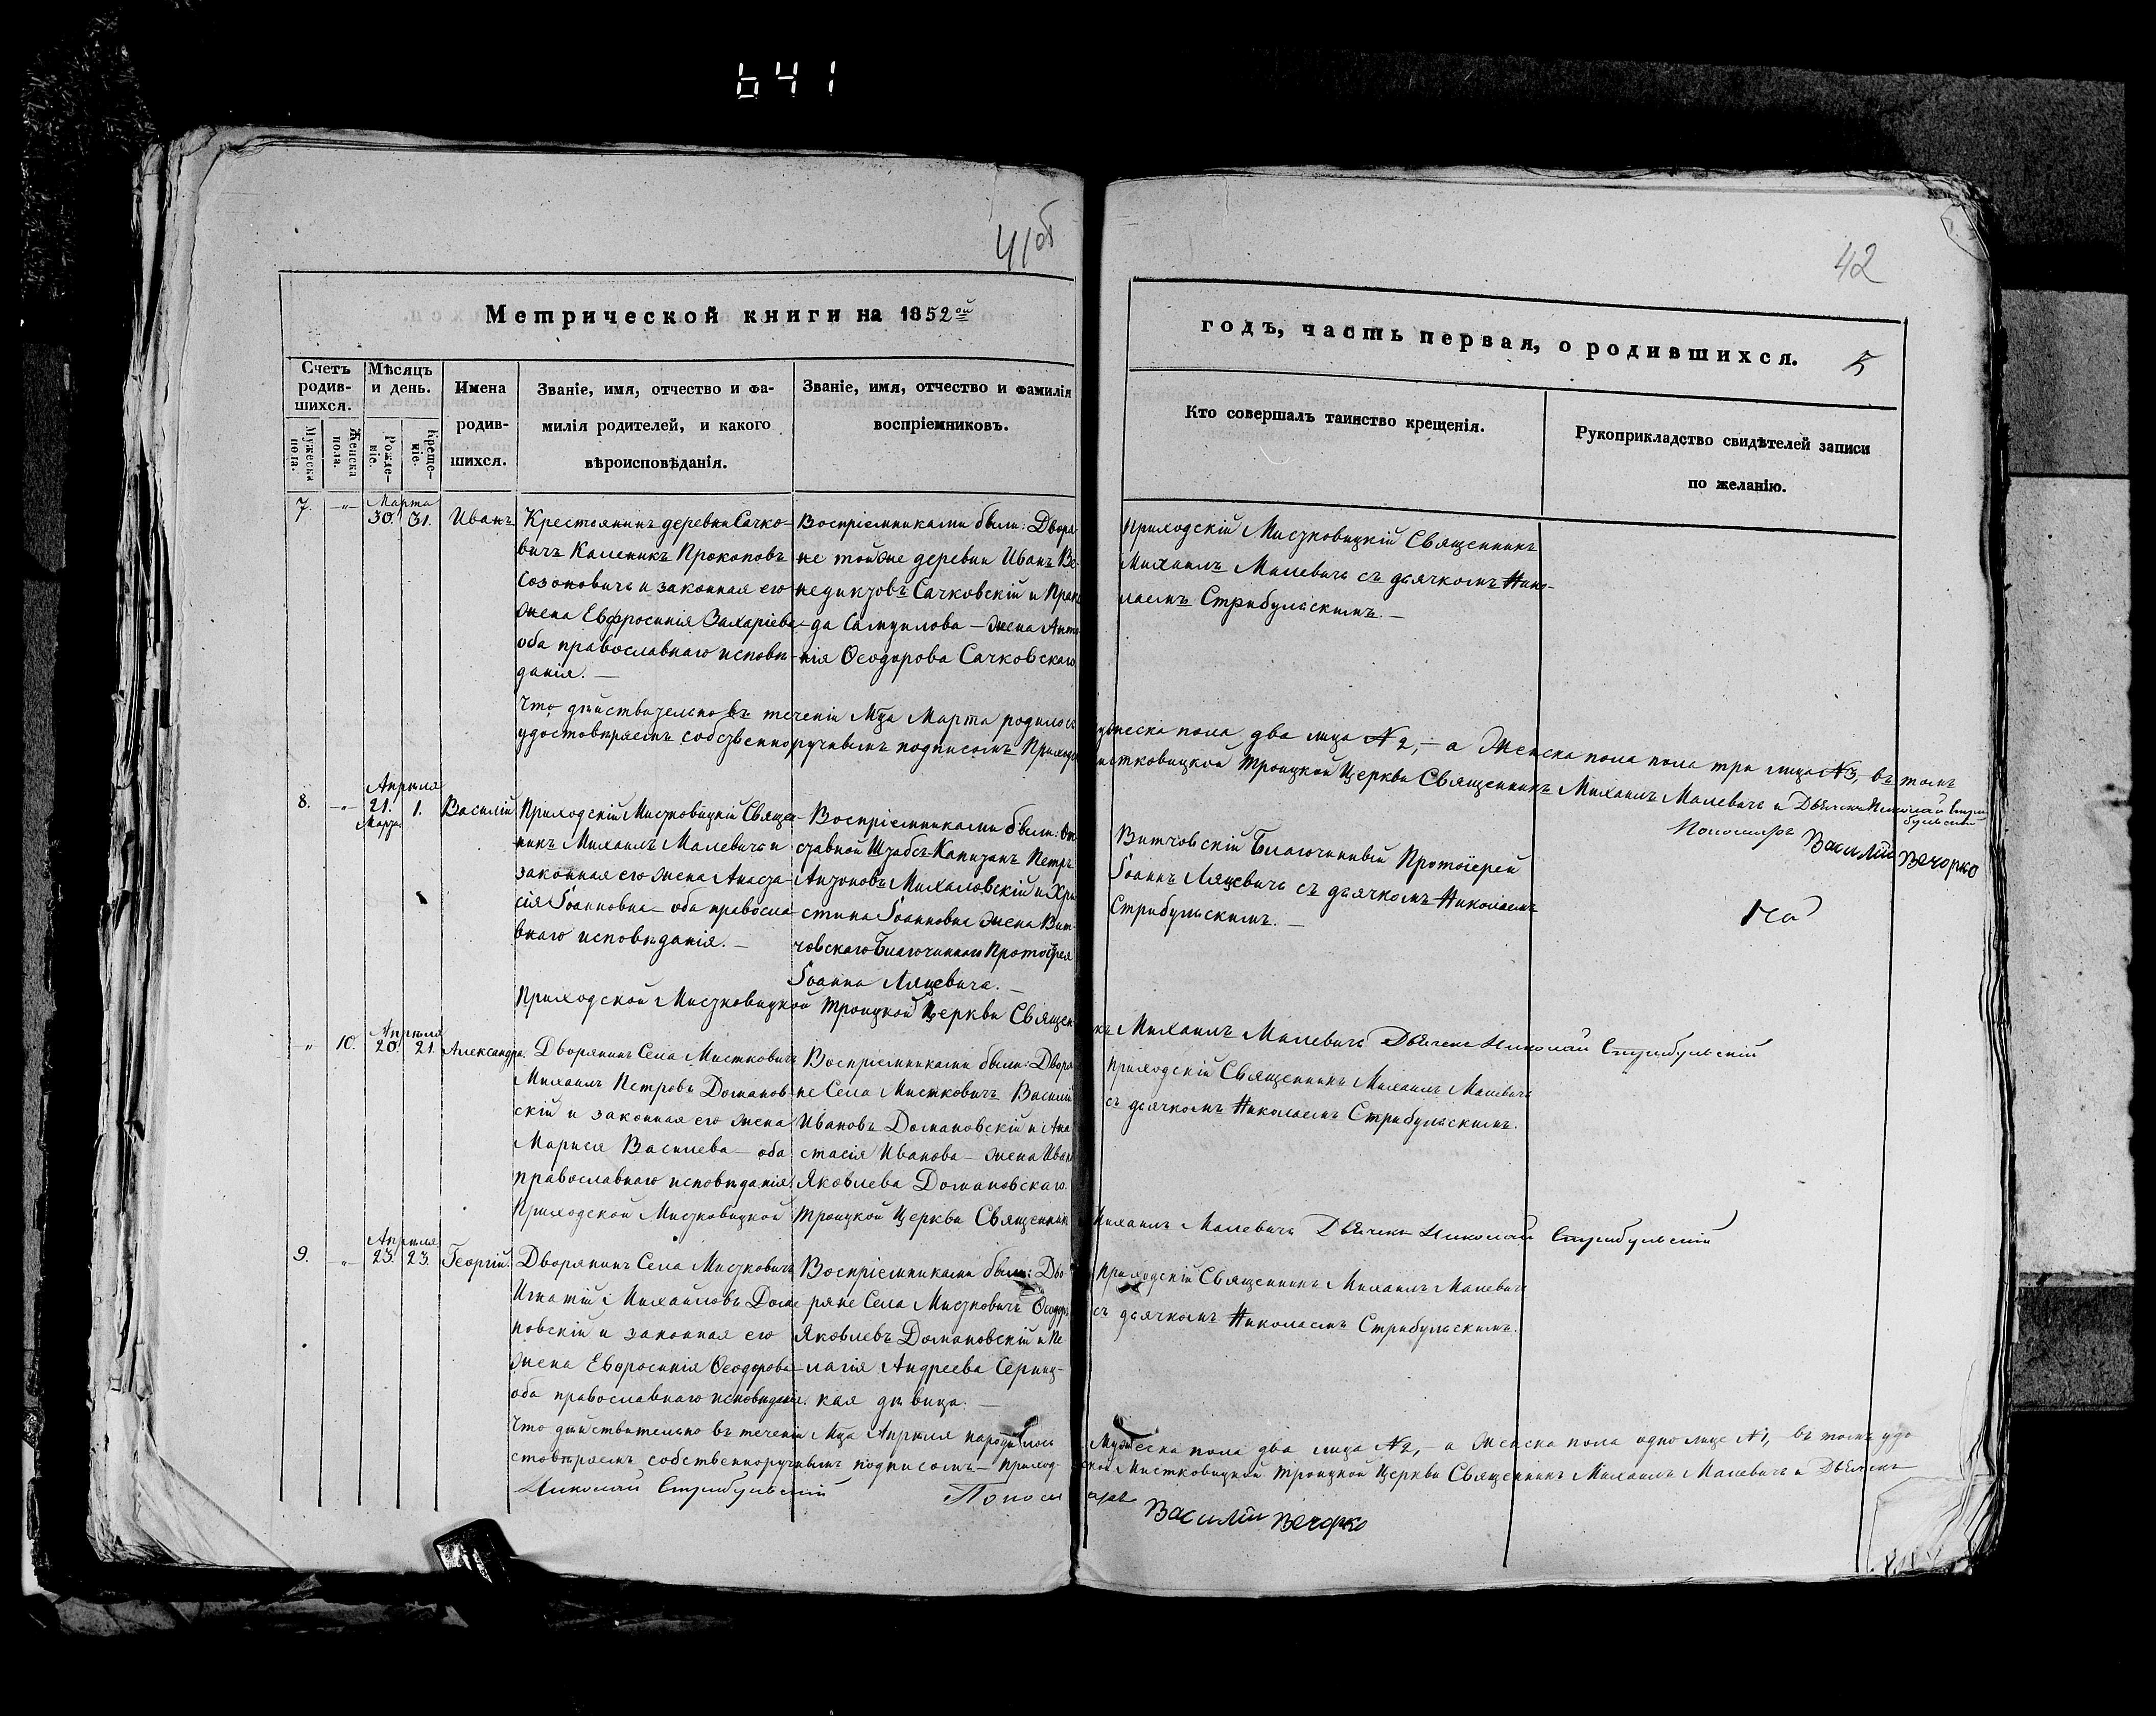 641
41об
42
Метрической книги на 1852ой
годъ, часть первая, о родившихся.
5
Счетъ родив-шихся.
Мужеска пола.
Женска пола.
Мѣсяцъ и день.
Рожде-ніе.
Креще-ніе.
Имена родив-шихся.
Званіе, имя, отчество и фа-
милія родителей, и какого
вѣроисповѣданія.
Званіе, имя, отчество и фамилія
воспріемниковъ.
Кто совершалъ таинство крещенія.
Рукоприкладство свидѣтелей записи
по желанію.
7. -"- Марта 30. 31. Иванъ
Крестьянинъ деревни Сачко-
вичъ Каленикъ Прокоповъ
Созоновичъ и законная его
жена Евфросинія Захаріева
оба православнаго исповѣ-
данія. —
Воспріемниками были: Дворя-
не той же деревни Иванъ Ве-
недиктовъ Сачковскій и
да Самуилова — жена Анто-
нія Ѳеодорова Сачковскаго
Приходскій Мистковицкій Священникъ
Михаилъ Малевичъ съ дьячкомъ Нико-
лаемъ Стрибульскимъ. —
Что дѣйствительно въ теченіи Мца Марта родилось мужеска пола два лица №2, — а Женска пола пола три лица №3, въ томъ
удостовѣряемъ собственноручнымъ подписомъ Приходской Мистковицкой Троицкой Церкви Священникъ Михаилъ Малевичъ и Дьячекъ Николай Стри-
бульский
Пономарь Василій Вечорко
8. -"- Апрѣля 21. Марта 1. Василій
Приходскій Мистковицкій Священ-
никъ Михаилъ Малевичъ и
законная его жена Анаста-
сія Іоанновна — оба правосла-
внаго исповѣданія. —
Воспріемниками были: От-
ставной Штабсъ-Капитанъ Петръ
Антоновъ Михаловскій и Хри-
стина Іоанновна жена Вит-
човскаго Благочиннаго Протоіерея
Іоанна Ляцевича. —
Витчовскій Благочинный Протоіерей
Іоаннъ Ляцевичъ съ дьячкомъ Николаемъ
Стрибульскимъ. —
Приходской Мистковицкой Троицкой Церкви Священникъ Михаилъ Малевичъ Дьячекъ Николай Стрибульский
" 10. Апрѣля 20. 21. Александра.
Дворянинъ Села Мистковичъ
Михаилъ Петровъ Доманов-
скій и законная его жена
Марися Василева — оба
православнаго исповѣданія.
Воспріемниками были: Дворя-
не Села Мистковичъ Василій
Ивановъ Домановскій и Ана-
стасія Иванова — жена Ивана
Яковлева Домановскаго.
Приходскій Священникъ Михаилъ Малевичъ
съ дьячкомъ Николаемъ Стрибульскимъ.
Приходской Мистковицкой Троицкой Церкви Священникъ Михаилъ Малевичъ Дьячекъ Николай Стрибульский
9. " Апрѣля 23. 23. Георгій.
Дворянинъ Села Мистковичъ
Игнатій Михайловъ Дома-
новскій и законная его
жена Евфросинія Ѳеодорова
оба православнаго исповѣданія.
Воспріемниками были: Дво-
ряне Села Мистковичъ Ѳеодоръ
Яковлевъ Домановскій и Пе-
лагія Андреева Серниц-
кая дѣвица. —
Приходскій Священникъ Михаилъ Малевичъ
съ дьячкомъ Николаемъ Стрибульскимъ.
Что дѣйствительно въ теченіи Мца Апрѣля народилось Мужеска пола два лица №2, — а Женска пола одно лице №1, — въ томъ удо-
стовѣряемъ собственноручнымъ подписомъ — Приход-ской Мистковицкой Троицкой Церкви Священникъ Михаилъ Малевичъ и Дьячекъ
Николай Стрибульский Пономарь Василій Вечорко